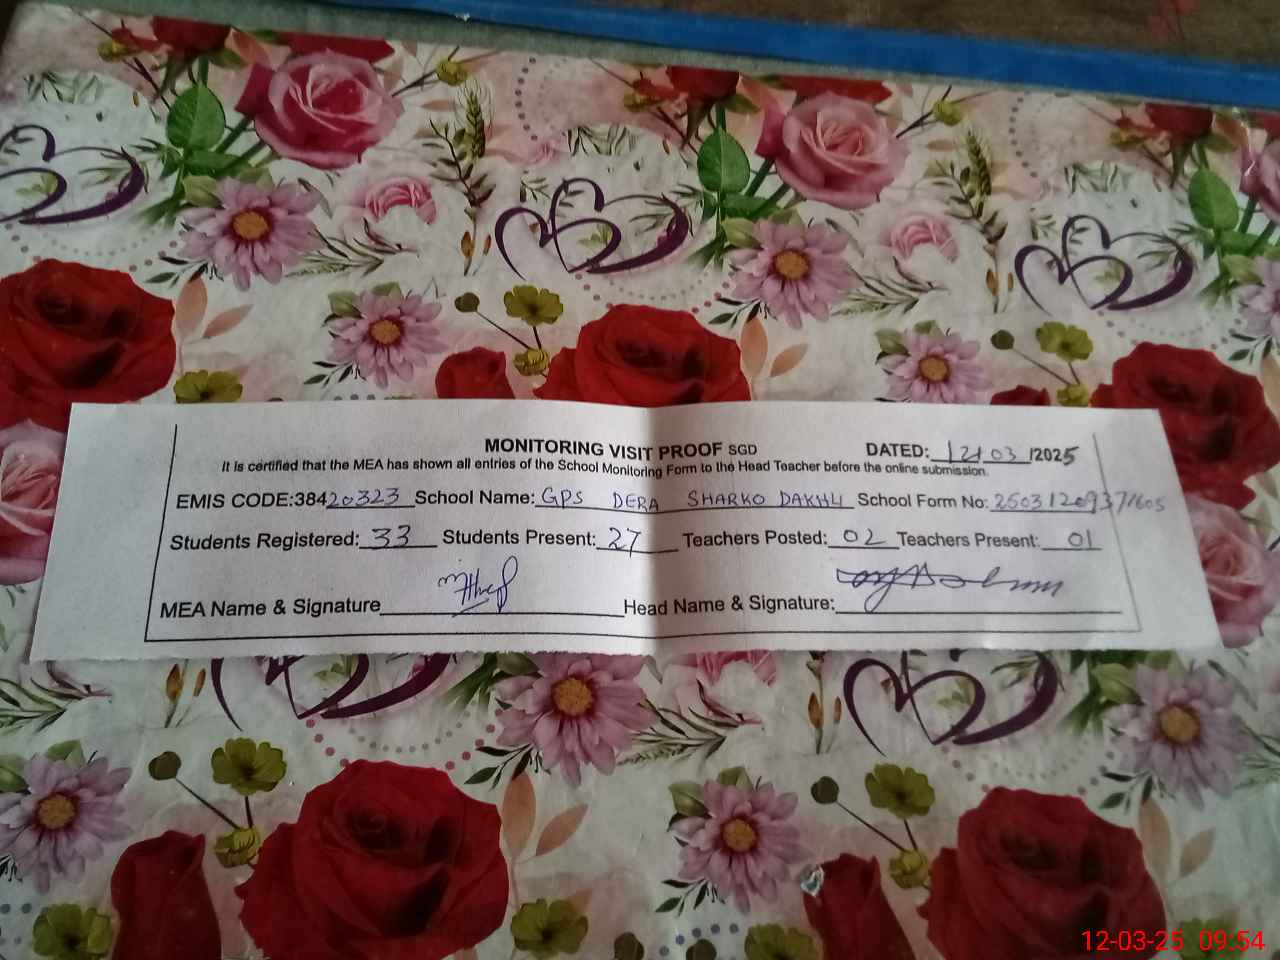 MONITORING VISIT PROOF SGD DATED: 12/03/2025
It is certified that the MEA has shown all entries of the School Monitoring Form to the Head Teacher before the online submission.
EMIS CODE:38420323 School Name: GPS DERA SHARKO DAKHLI School Form No: 25031209371605
Students Registered: 33 Students Present: 27 Teachers Posted: 02 Teachers Present: 01
MEA Name & Signature Head Name & Signature:
12-03-25 09:54